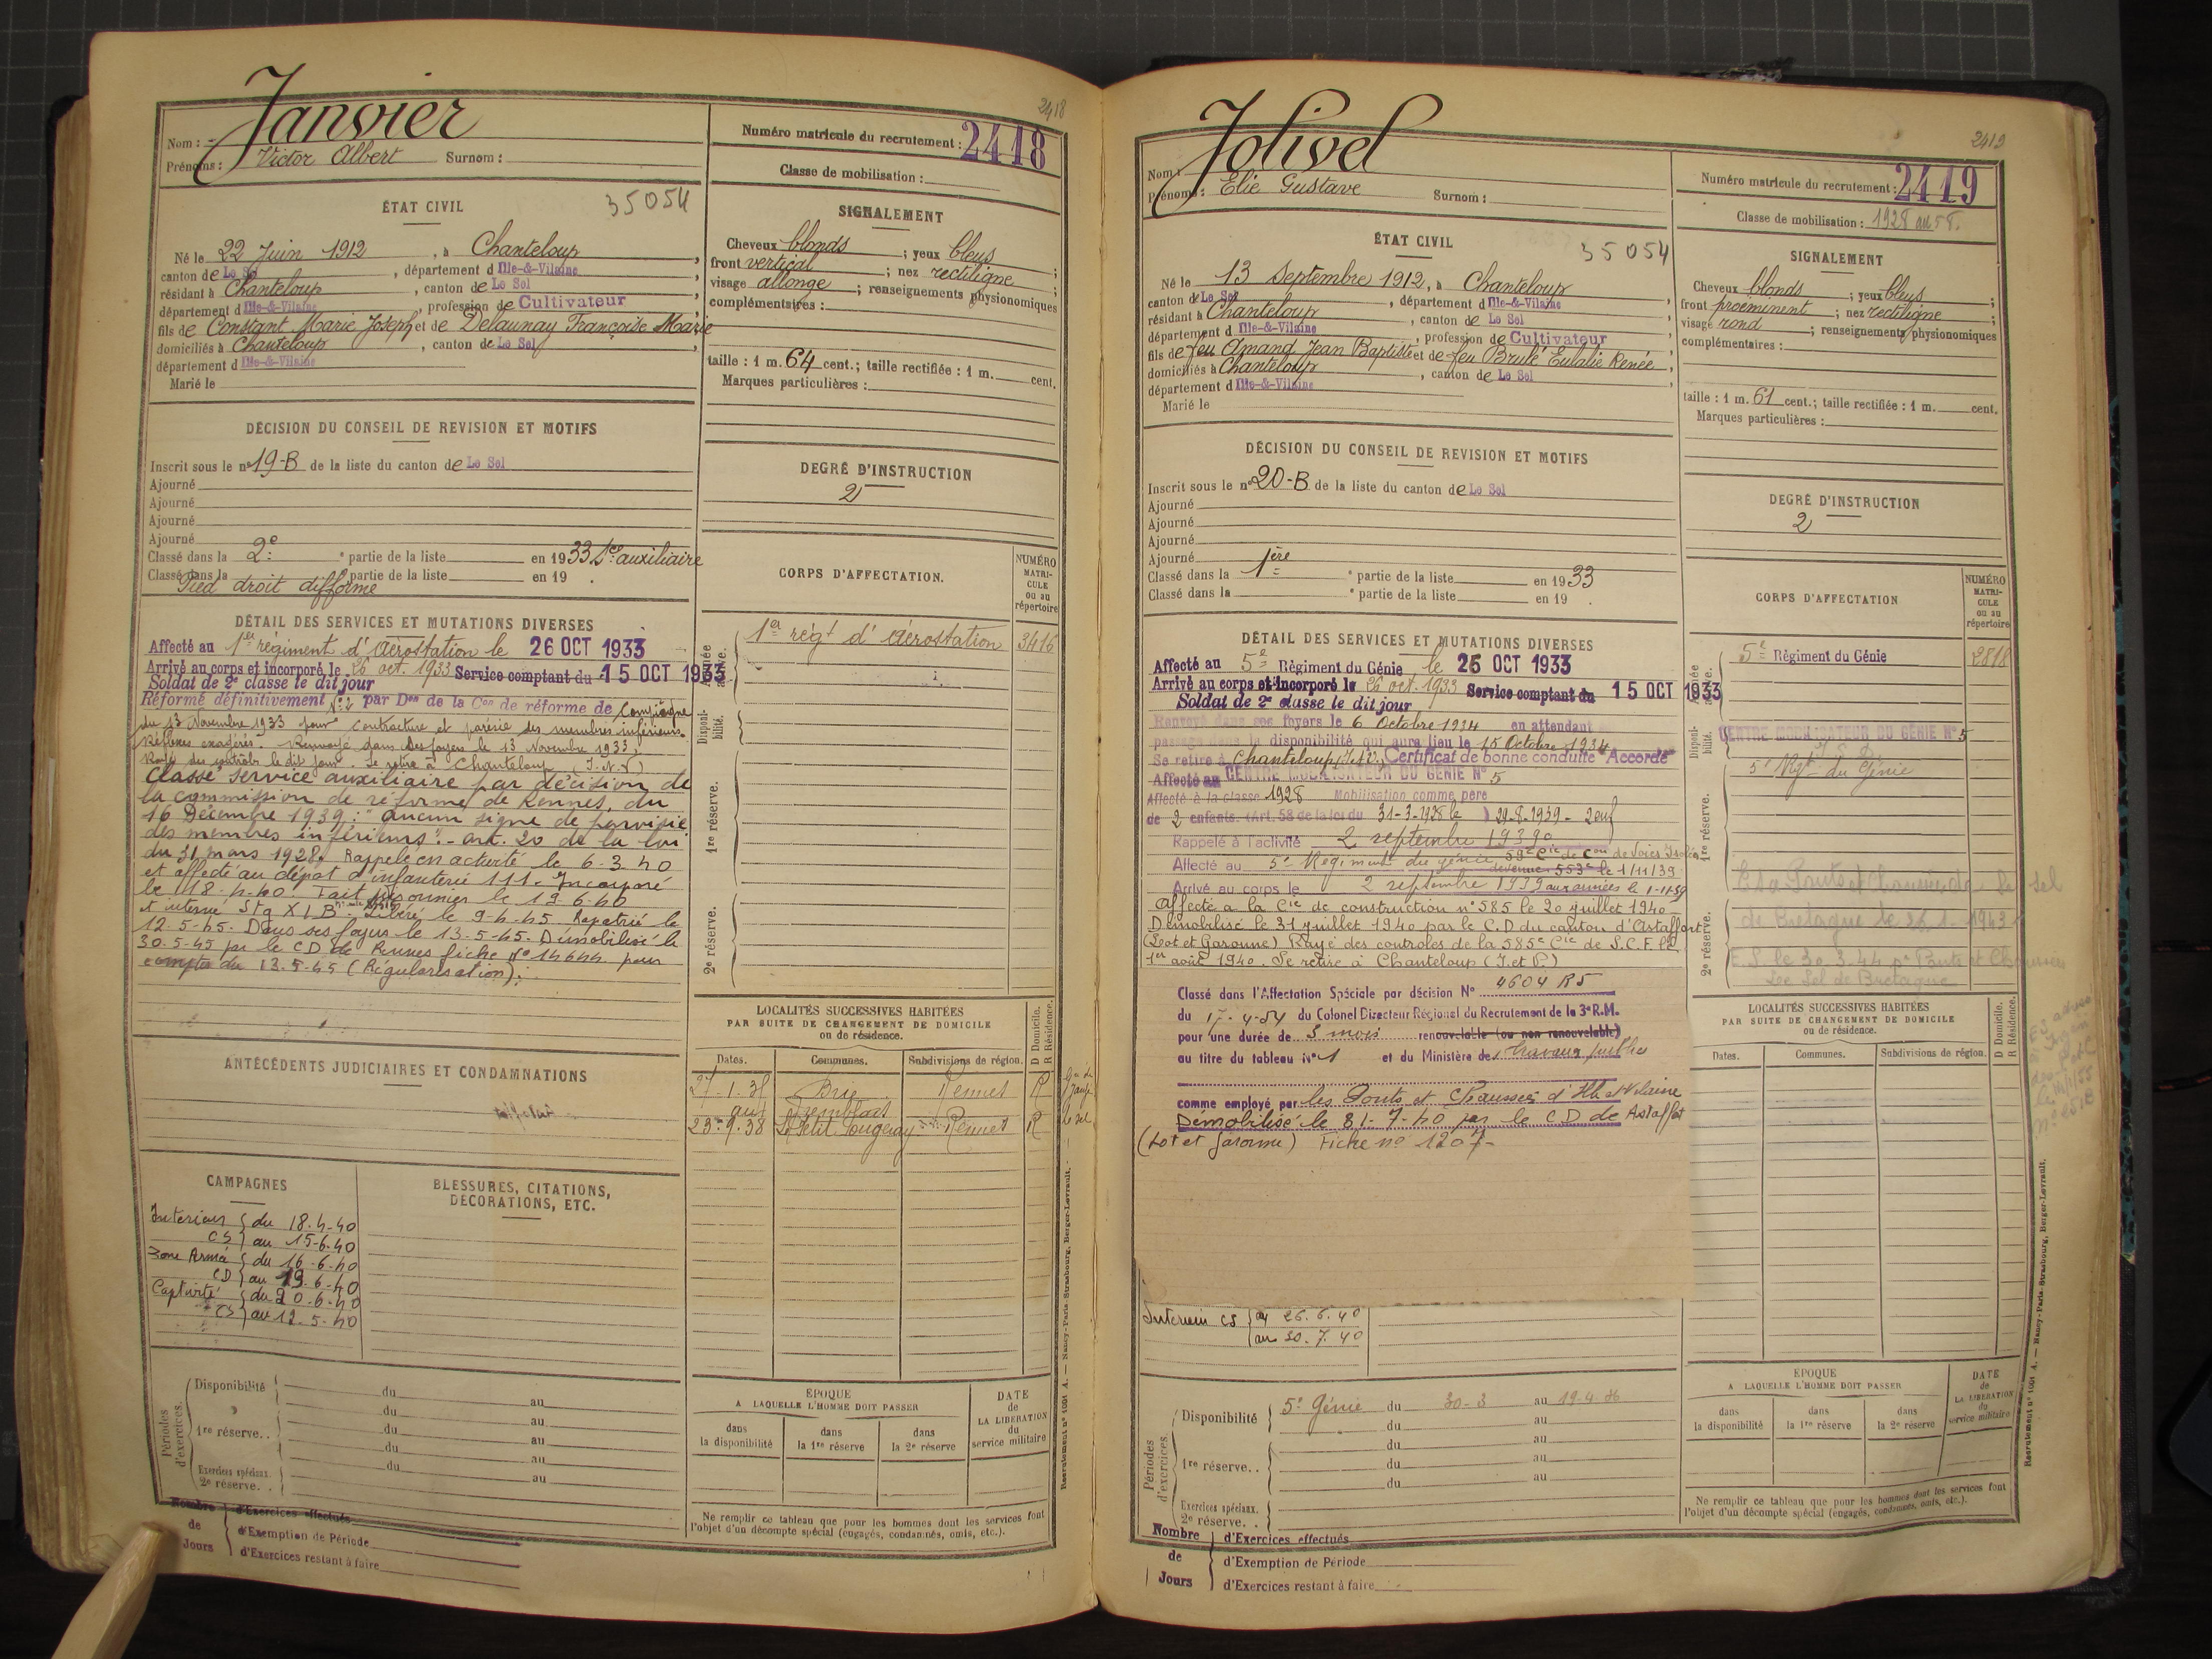 2418
Janvier
Nom :
Prénoms : Victor Albert Surnom :
Numéro matricule du recrutement : 2418
Classe de mobilisation :
ÉTAT CIVIL
35054
Né le 22 Juin 1912, à Chanteloup,
canton de Le Sel, département d Ille-&-Vilaine
résidant à Chanteloup, canton de Le Sel,
département d Ille-&-Vilaine, profession de Cultivateur,
fils de Constant Marie Joseph et de Delaunay Françoise Marie
domiciliés à Chanteloup, canton de Le Sel,
département d Ille-&-Vilaine
Marié le
SIGNALEMENT
Cheveux blonds ; yeux bleus ;
front vertical ; nez rectiligne ;
visage allongé ; renseignements physionomiques
complémentaires :
taille : 1 m. 64 cent.; taille rectifiée : 1 m. cent.
Marques particulières :
DÉCISION DU CONSEIL DE REVISION ET MOTIFS
Inscrit sous le n° 19-B de la liste du canton de Le Sel
Ajourné
Ajourné
Ajourné
Ajourné
Classé dans la 2e partie de la liste en 1933 Sce auxiliaire
Classé dans la partie de la liste en 19 .
Pied droit difforme
DEGRÉ D'INSTRUCTION
2
CORPS D'AFFECTATION.
NUMÉRO MATRI-CULE ou au répertoire
Armée active.
1er régt d'Aérostation 3416
Disponi-bilité.
1re réserve.
2e réserve.
DÉTAIL DES SERVICES ET MUTATIONS DIVERSES
Affecté au 1er régiment d'Aérostation le 26 OCT 1933
Arrivé au corps et incorporé le 26 oct. 1933 Service comptant du 15 OCT 1933
Soldat de 2e classe le dit jour
Réformé définitivement N° 2 par Don de la Con de réforme de Compiègne
du 13 Novembre 1933 pour contracture et parésie des membres inférieurs
Réflexes exagérés. Renvoyé dans ses foyers le 13 Novembre 1933,
Rayé des contrôles le dit jour. Se retire à Chanteloup (I.&V)
Classé service auxiliaire par décision de
la commission de réforme de Rennes, du
16 Décembre 1939 : "aucun signe de
des membres inférieurs". - art. 20 de la loi
du 31 mars 1928. Rappelé en activité le 6-3-40
et affecté au dépôt d'infanterie 111. Incorporé
le 18-4-40. Fait prisonnier le 19-6-40
et interné Stg XI B. Libéré le 9-4-45. Rapatrié le
12.5-45. Dans ses foyers le 13.5-45. Démobilisé le
30.5-45 par le CD de Rennes fiche n° 14644 pour
compter du 13.5-45 (Régularisation).
LOCALITÉS SUCCESSIVES HABITÉES
PAR SUITE DE CHANGEMENT DE DOMICILE
ou de résidence.
D Domicile. R Résidence.
Dates. Communes. Subdivisions de région.
27-1-38 Brie Rennes R
au
23-9-38 Le Petit Fougeray Rennes R
ANTÉCÉDENTS JUDICIAIRES ET CONDAMNATIONS
CAMPAGNES
BLESSURES, CITATIONS, DÉCORATIONS, ETC.
Intérieur du 18-4-40
CS au 15-6-40
Zone Armée du 16-6-40
CD au 19-6-40
Captivité du 20-6-40
CS au 12-5-40
Périodes d'exercices.
Disponibilité du au
du au
1re réserve. . du au
du au
Exercices spéciaux. du au
2e réserve. .
ÉPOQUE
A LAQUELLE L'HOMME DOIT PASSER
dans la disponibilité
dans la 1re réserve
dans la 2e réserve
DATE de LA LIBÉRATION du service militaire
Ne remplir ce tableau que pour les hommes dont les services font
l'objet d'un décompte spécial (engagés, condamnés, omis, etc.).
Nombre de Jours
d'Exercices effectués
d'Exemption de Période
d'Exercices restant à faire
Recrutement n° 1001 A. — Nancy-Paris-Strasbourg, Berger-Levrault.
2419
Jolivel
Nom :
Prénoms : Elie Gustave Surnom :
Numéro matricule du recrutement : 2419
Classe de mobilisation : 1928 art 58.
ÉTAT CIVIL
35054
Né le 13 Septembre 1912, à Chanteloup
canton de Le Sel, département d Ille-&-Vilaine
résidant à Chanteloup, canton de Le Sel
département d Ille-&-Vilaine, profession de Cultivateur
fils de feu Amand Jean Baptiste et de feu Brulé Eulalie Renée,
domiciliés à Chanteloup, canton de Le Sel,
département d Ille-&-Vilaine
Marié le
SIGNALEMENT
Cheveux blonds ; yeux bleus ;
front proéminent ; nez rectiligne ;
visage rond ; renseignements physionomiques
complémentaires :
taille : 1 m. 61 cent.; taille rectifiée : 1 m. cent.
Marques particulières :
DÉCISION DU CONSEIL DE REVISION ET MOTIFS
Inscrit sous le n° 20-B de la liste du canton de Le Sel
Ajourné
Ajourné
Ajourné
Ajourné
Classé dans la 1ère partie de la liste en 1933
Classé dans la partie de la liste en 19 .
DEGRÉ D'INSTRUCTION
2
CORPS D'AFFECTATION
NUMÉRO MATRI-CULE ou au répertoire
Armée active.
5e Régiment du Génie 2818
Disponi-bilité.
CENTRE MOBILISATEUR DU GÉNIE N° 5
5e Régt du Génie
1re réserve.
2e réserve.
de Bretagne le 26-1-1943
E.S. le 30.3.44 pr Ponts et Chaussées
Le Sel de Bretagne
DÉTAIL DES SERVICES ET MUTATIONS DIVERSES
Affecté au 5e Régiment du Génie le 26 OCT 1933
Arrivé au corps et incorporé le 26 oct. 1933 Service comptant du 15 OCT 1933
Soldat de 2e classe le dit jour
Renvoyé dans ses foyers le 6 Octobre 1934 en attendant
passage dans la disponibilité qui aura lieu le 15 Octobre 1934
Se retire à Chanteloup (I&V). Certificat de bonne conduite "Accordé"
Affecté au CENTRE MOBILISATEUR DU GÉNIE N° 5
Affecté à la classe 1928 Mobilisation comme père
de 2 enfants (Art. 58 de la loi du 31-3-1928 le 29-8-1939 - 2 enf
Rappelé à l'activité 2 septembre 1939
Affecté au 5e Régiment du génie 59e Cie de Con de Voies
devenue 553e le 1/11/39
Arrivé au corps le 2 septembre 1939 aux armées le 1-11-39
Affecté à la Cie de construction n° 585 le 20 juillet 1940
Démobilisé le 31 juillet 1940 par le C.D du canton d'Astaffort
(Lot et Garonne) Rayé des contrôles de la 585e Cie de S.C.F. le
1er août 1940. Se retire à Chanteloup (I. et V.)
Classé dans l'Affectation Spéciale par décision N° 4604 R5
du 17-4-54 du Colonel Directeur Régional du Recrutement de la 3e R.M.
pour une durée de 3 mois renouvelable (ou non renouvelable)
au titre du tableau N° 1 et du Ministère des travaux publics
comme employé par les Ponts et Chaussées d'Ille et Vilaine
Démobilisé le 31-7-40 par le CD de Astaffort
(Lot et Garonne) Fiche n° 1207-
LOCALITÉS SUCCESSIVES HABITÉES
PAR SUITE DE CHANGEMENT DE DOMICILE
ou de résidence.
D Domicile. R Résidence.
Dates. Communes. Subdivisions de région.
Intérieur CS du 26.6.40
au 30.7.40
Périodes d'exercices.
Disponibilité 5e Génie du 30-3 au 19-4-36
du au
du au
1re réserve. . du au
du au
Exercices spéciaux.
2e réserve. .
ÉPOQUE
A LAQUELLE L'HOMME DOIT PASSER
dans la disponibilité
dans la 1re réserve
dans la 2e réserve
DATE de LA LIBÉRATION du service militaire
Ne remplir ce tableau que pour les hommes dont les services font
l'objet d'un décompte spécial (engagés, condamnés, omis, etc.).
Nombre de Jours
d'Exercices effectués
d'Exemption de Période
d'Exercices restant à faire
Recrutement n° 1001 A. — Nancy-Paris-Strasbourg, Berger-Levrault.